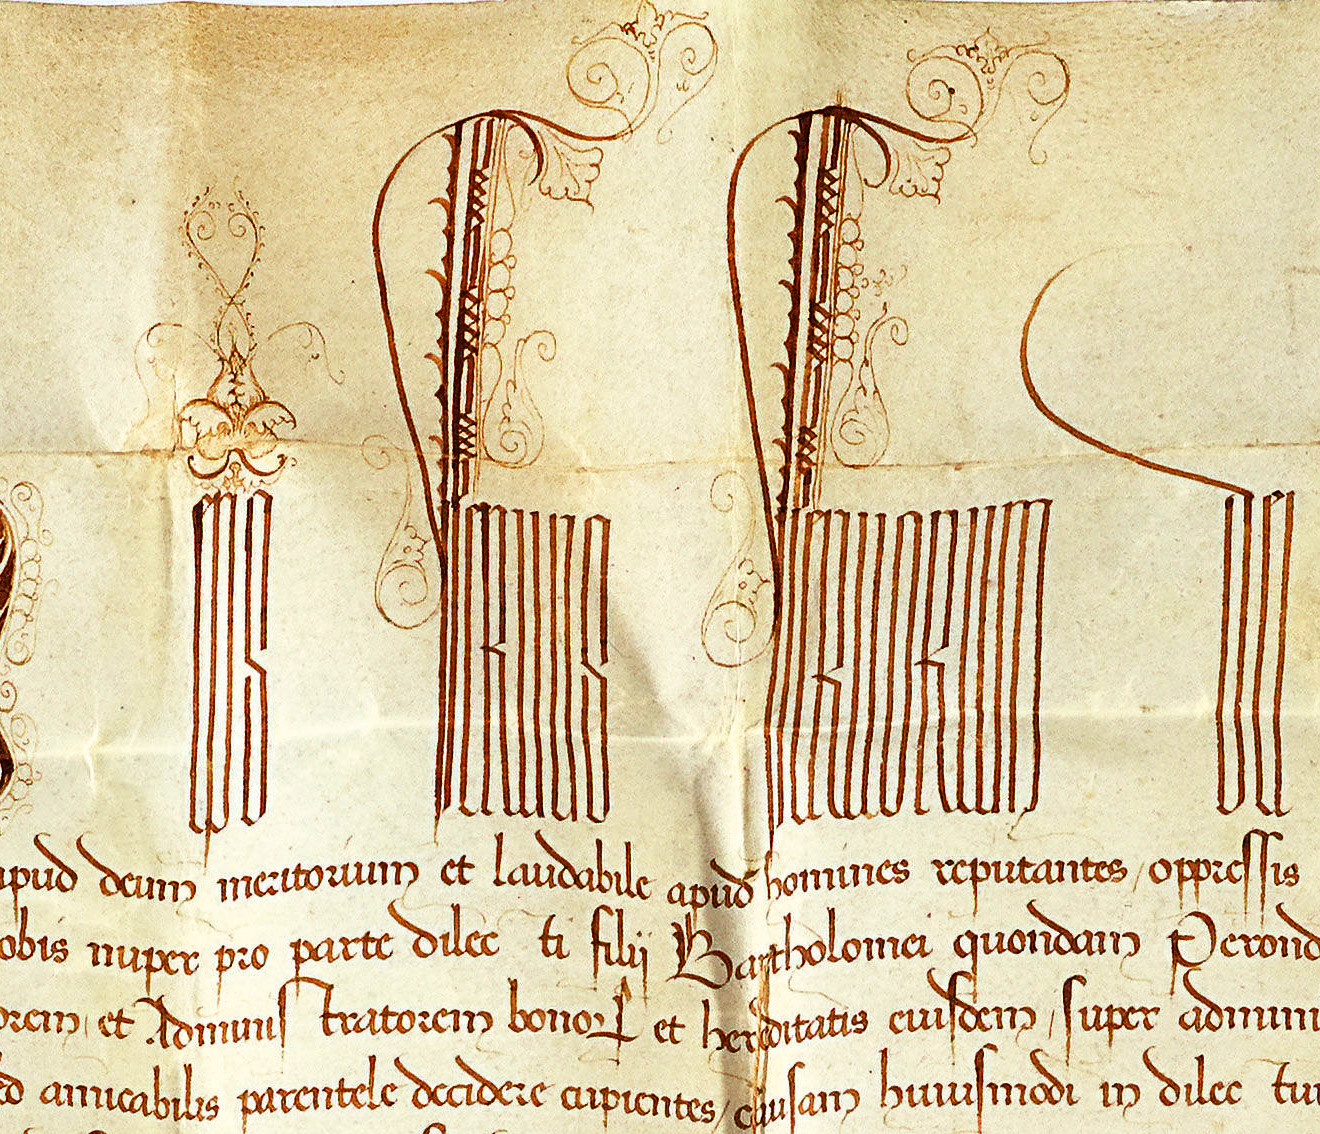 eps seruus seruorum de
apud deum meritorium et laudabile apud homines reputantes, oppressis
obis nuper pro parte dilec ti filij Bartholomei quondam Perond
orem, et Adminis tratorem bonoꝝ et hereditatis eiusdem, super admini
ed amicabilis parentele decidere cupientes, causam huiusmodi in dilec tum